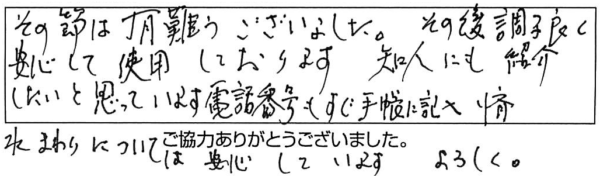 その節は有難うございました。その後調子良く
安心して使用しております 知人にも紹介
したいと思っています電話番号もすぐ手帳に記入済
水まわりについて
ご協力ありがとうございました。
は安心しています よろしく。